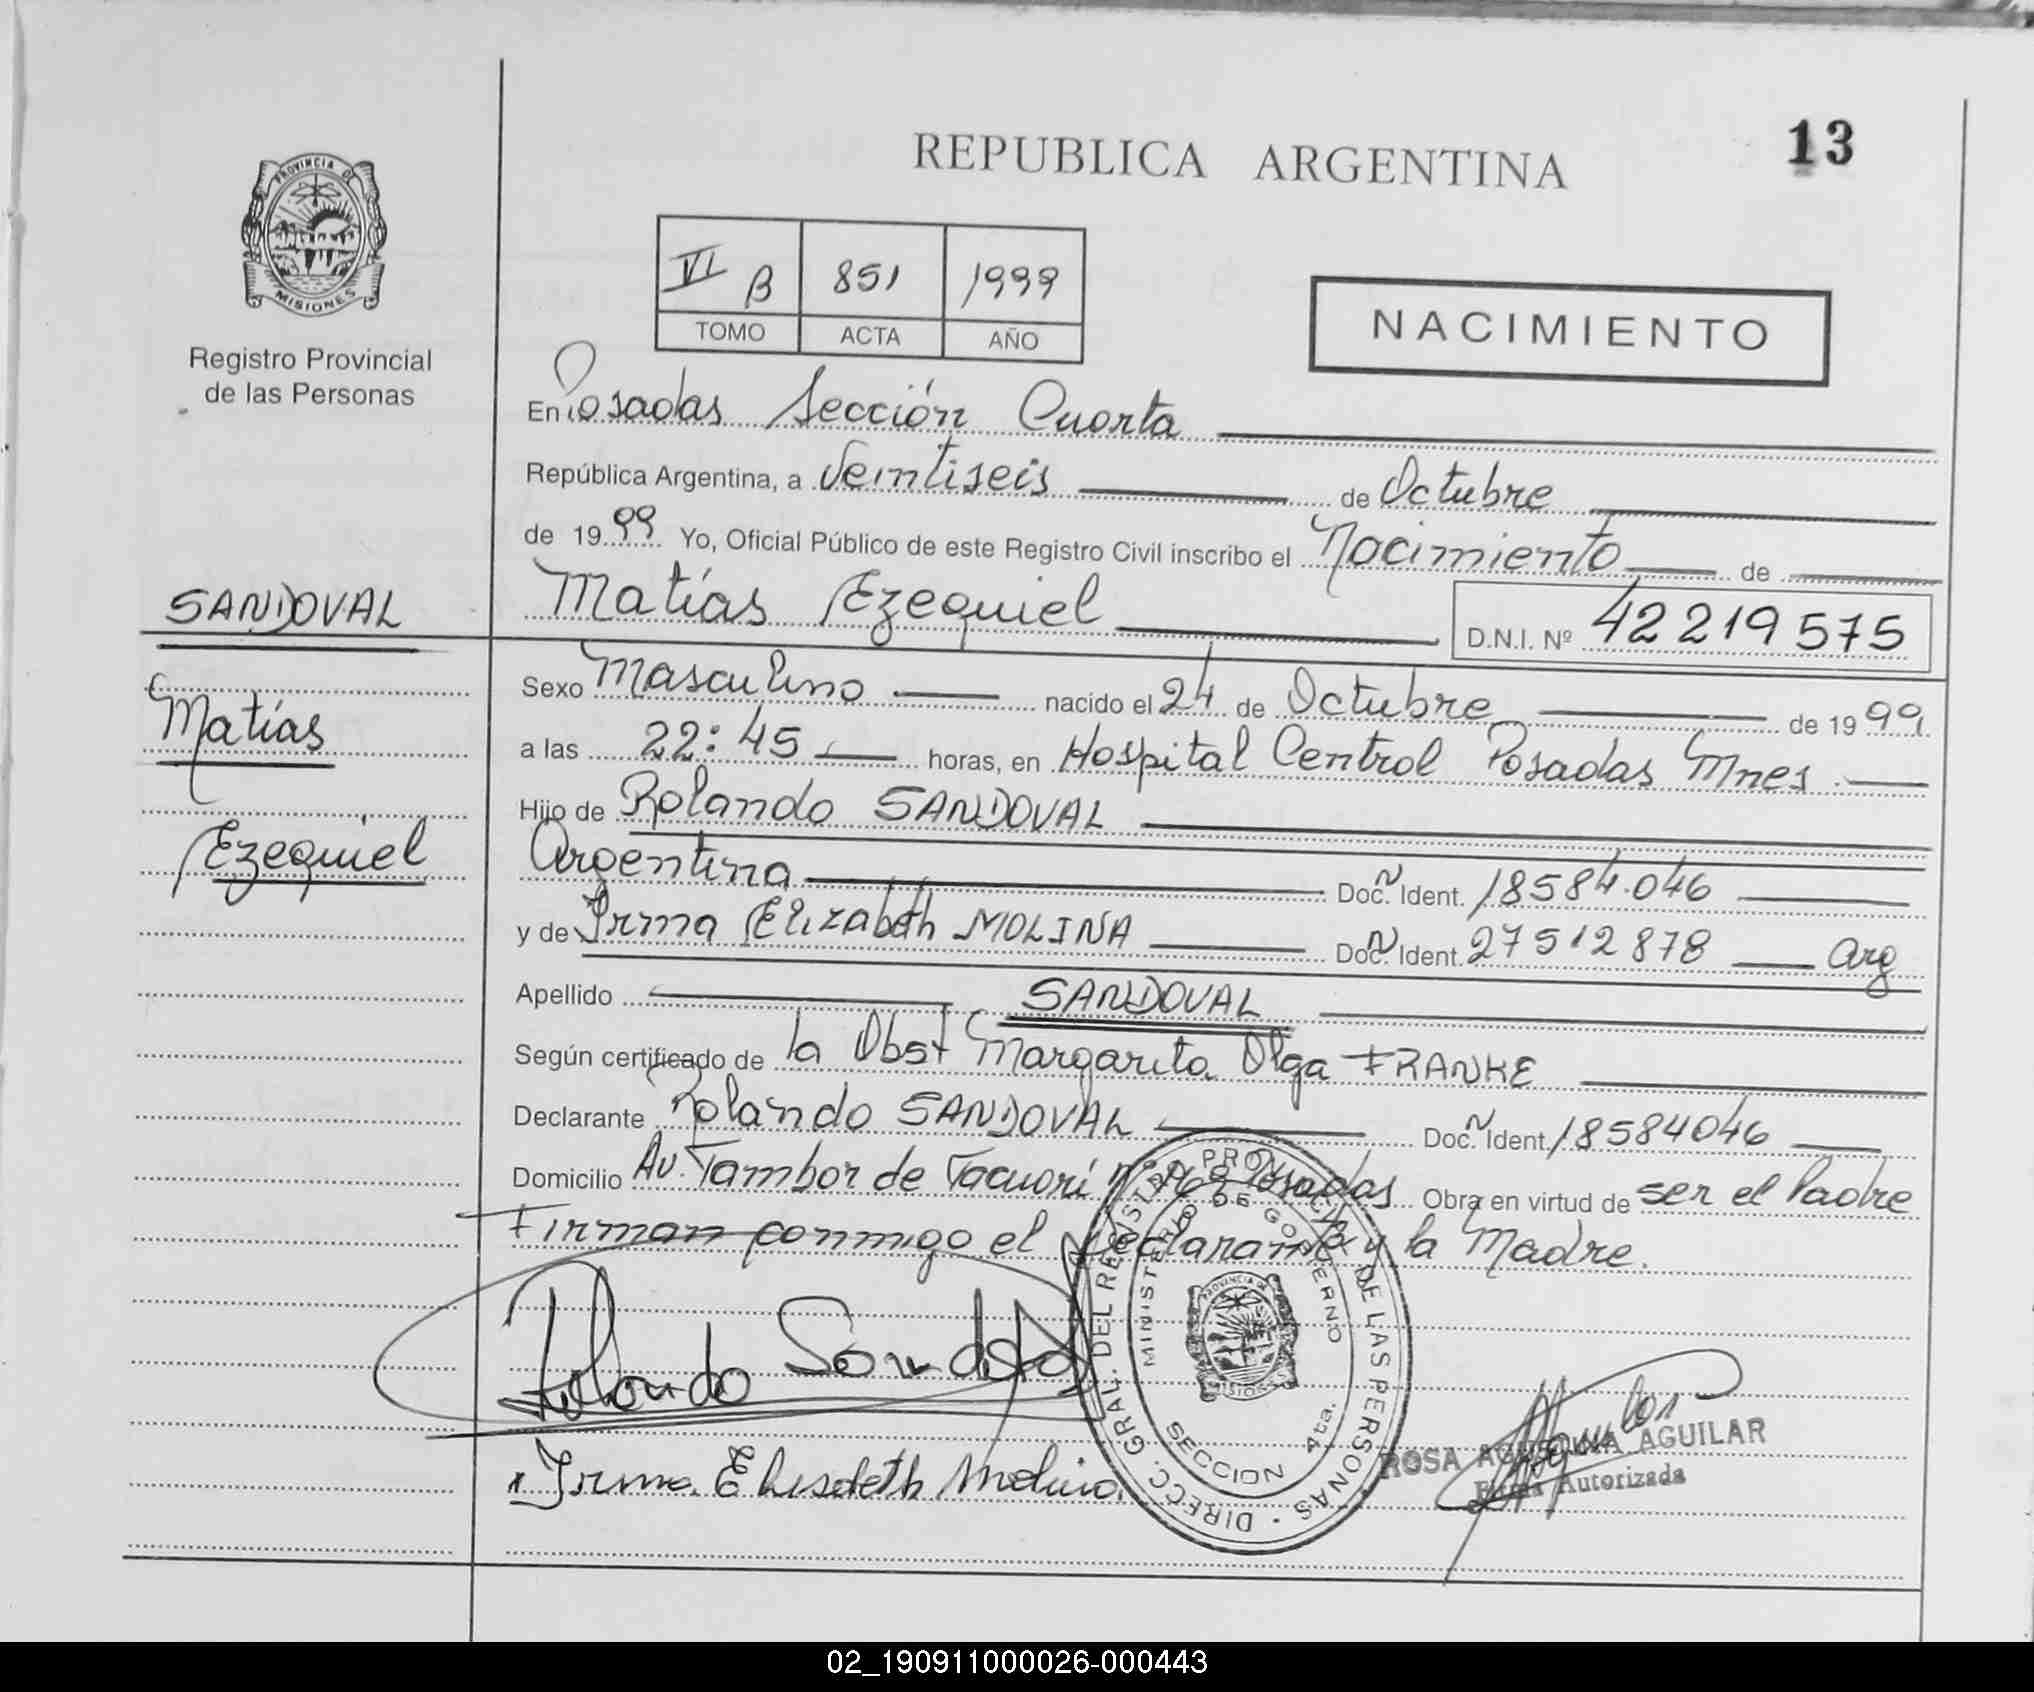 REPUBLICA ARGENTINA
13
PROVINCIA DE
MISIONES
Registro Provincial
de las Personas
VI B 851 1999
TOMO ACTA AÑO
NACIMIENTO
En Posadas Sección Cuarta
República Argentina, a Veintiseis de Octubre
de 1999 Yo, Oficial Público de este Registro Civil inscribo el Nacimiento de
SANDOVAL
Matías Ezequiel D.N.I. Nº 42219575
Matías
Ezequiel
Sexo Masculino nacido el 24 de Octubre de 1999
a las 22:45 horas, en Hospital Central Posadas Mnes
Hijo de Rolando SANDOVAL
Argentina Doc. Ident. 18584.046
y de Irma Elizabeth MOLINA Doc. Ident. 27512878 Arg
Apellido SANDOVAL
Según certificado de la Obst Margarita Olga FRANKE
Declarante Rolando SANDOVAL Doc. Ident. 18584046
Domicilio Av. Tambor de Tacuarí Posadas Obra en virtud de ser el Padre
Firman conmigo el Declarante y la Madre.
Rolando Sandoval
Irma Elisabeth Molina
DIRECC. GRAL. DEL REGISTRO PROVINCIAL DE LAS PERSONAS
MINISTERIO DE GOBIERNO
PROVINCIA DE
MISIONES
SECCION 4ta.
ROSA AGUSTINA AGUILAR
Firma Autorizada
02_190911000026-000443